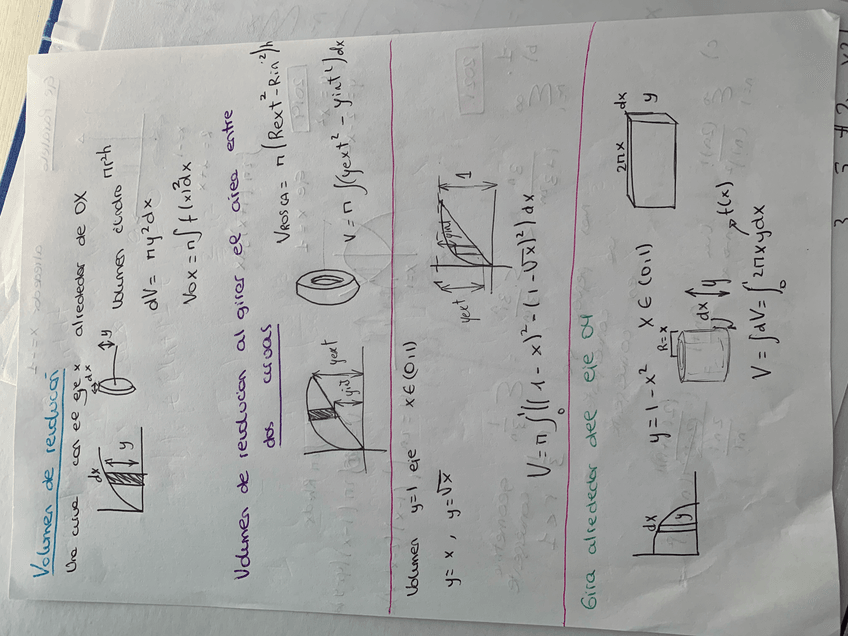 Volumen de revolución
Una curva con el eje x alrededor de OX
dx
y
dx
y
Volumen cilindro πr²h
dV = πy²dx
Vox = π∫f(x)²dx
Volumen de revolución al girar el area entre
dos curvas
yext
yint
VROSCA = π(Rext² - Rin²)h
V = π∫(yext² - yint²)dx
Volumen y=1, eje x∈(0,1)
y=x, y=√x
yext
yint
1
V = π∫₀¹((1-x)² - (1-√x)²)dx
Gira alrededor del eje OY
y = 1-x² x∈(0,1)
dx
y
R=x
dx
y
f(x)
2πx
dx
y
V = ∫dV = ∫₀ 2πxydx